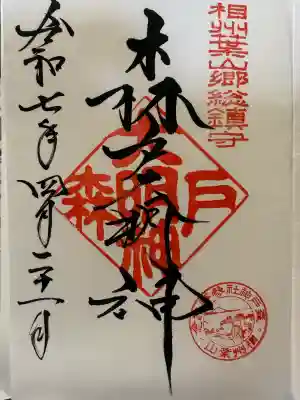 相州葉山郷総鎮守
森戸大明神
森戸大明神
令和七年四月二十一日
相州葉山